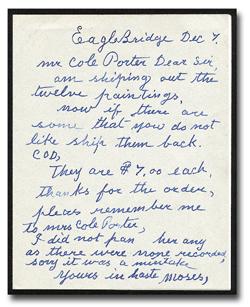 EagleBridge Dec 7.
mr Cole Porter Dear Sir,
am shiping out the
twelve paintings,
now if there are
some that you do not
like ship them back.
COD,
They are $7.00 each,
thanks for the order,
pleas remember me
to mrs Cole Porter,
I did not pan her any
as there were none recorded
sorry it was a mistake
yours in haste Moses,